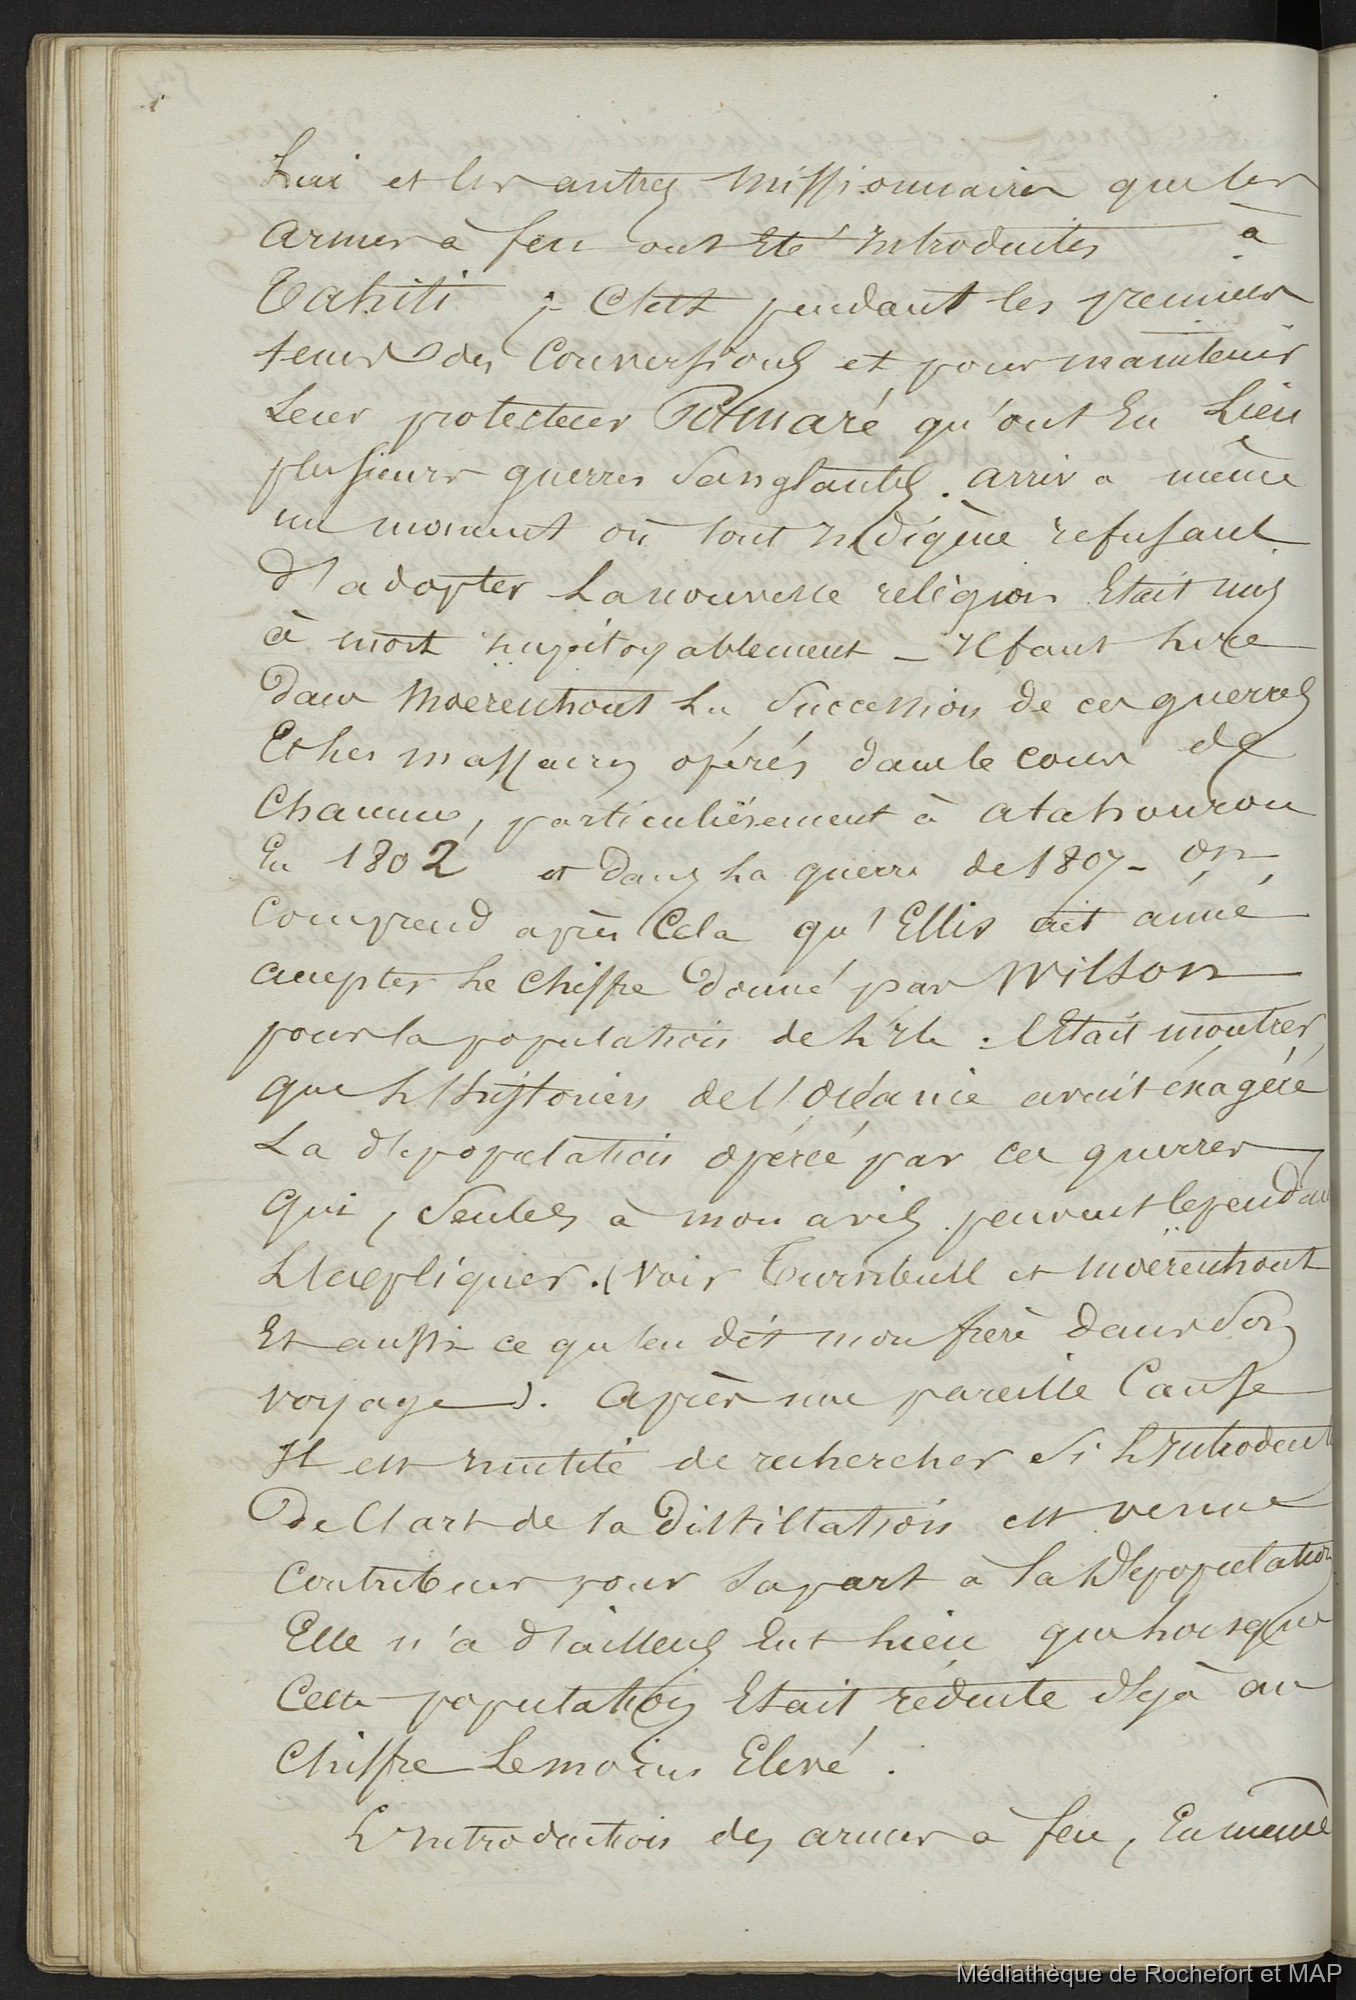 Lui et les autres missionnaires que les
armes à feu ont été introduites à
Tahiti ; C'est pendant les premiers
tems des Conversions et pour maintenir
Leur protecteur Pomaré qu'ont Eu Lieu
plusieurs guerres Sanglantes. arriva même
un moment où tout Indigène refusant
D'adopter La nouvelle religion Etait mis
à mort impitoyablement _ Il faut Lire
Dans Moerenhout La Succession de ces guerres
Et Les massacres opérés dans le cours de
Chacune, particulièrement à atahourou
En 1802 et Dans La guerre de 1807 - On
Comprend après Cela qu'Ellis ait aimé
accepter Le Chiffre Donné par Wilson
pour la population de L'Ile . C'Etait montrer
que L'Historien de l'Océanie avait éxagéré
La dépopulation opérée par ces guerres
Qui, Seules à mon avis peuvent Cependant
L'Expliquer. (Voir Turnbull et Moërenhout
Et aussi ce qu'en dit mon frère dans Son
voyage). Après une pareille Cause
Il est Inutile de rechercher Si L'Introduct
De L'art de la Distillation est venue
Contribuer pour Sa part à La Dépopulation
Elle n'a d'ailleurs Eut Lieu que Lorsque
Cette population Etait réduite déjà au
Chiffre Le moins Elevé .
L'Introduction des armes à feu, En même
Médiathèque de Rochefort et MAP